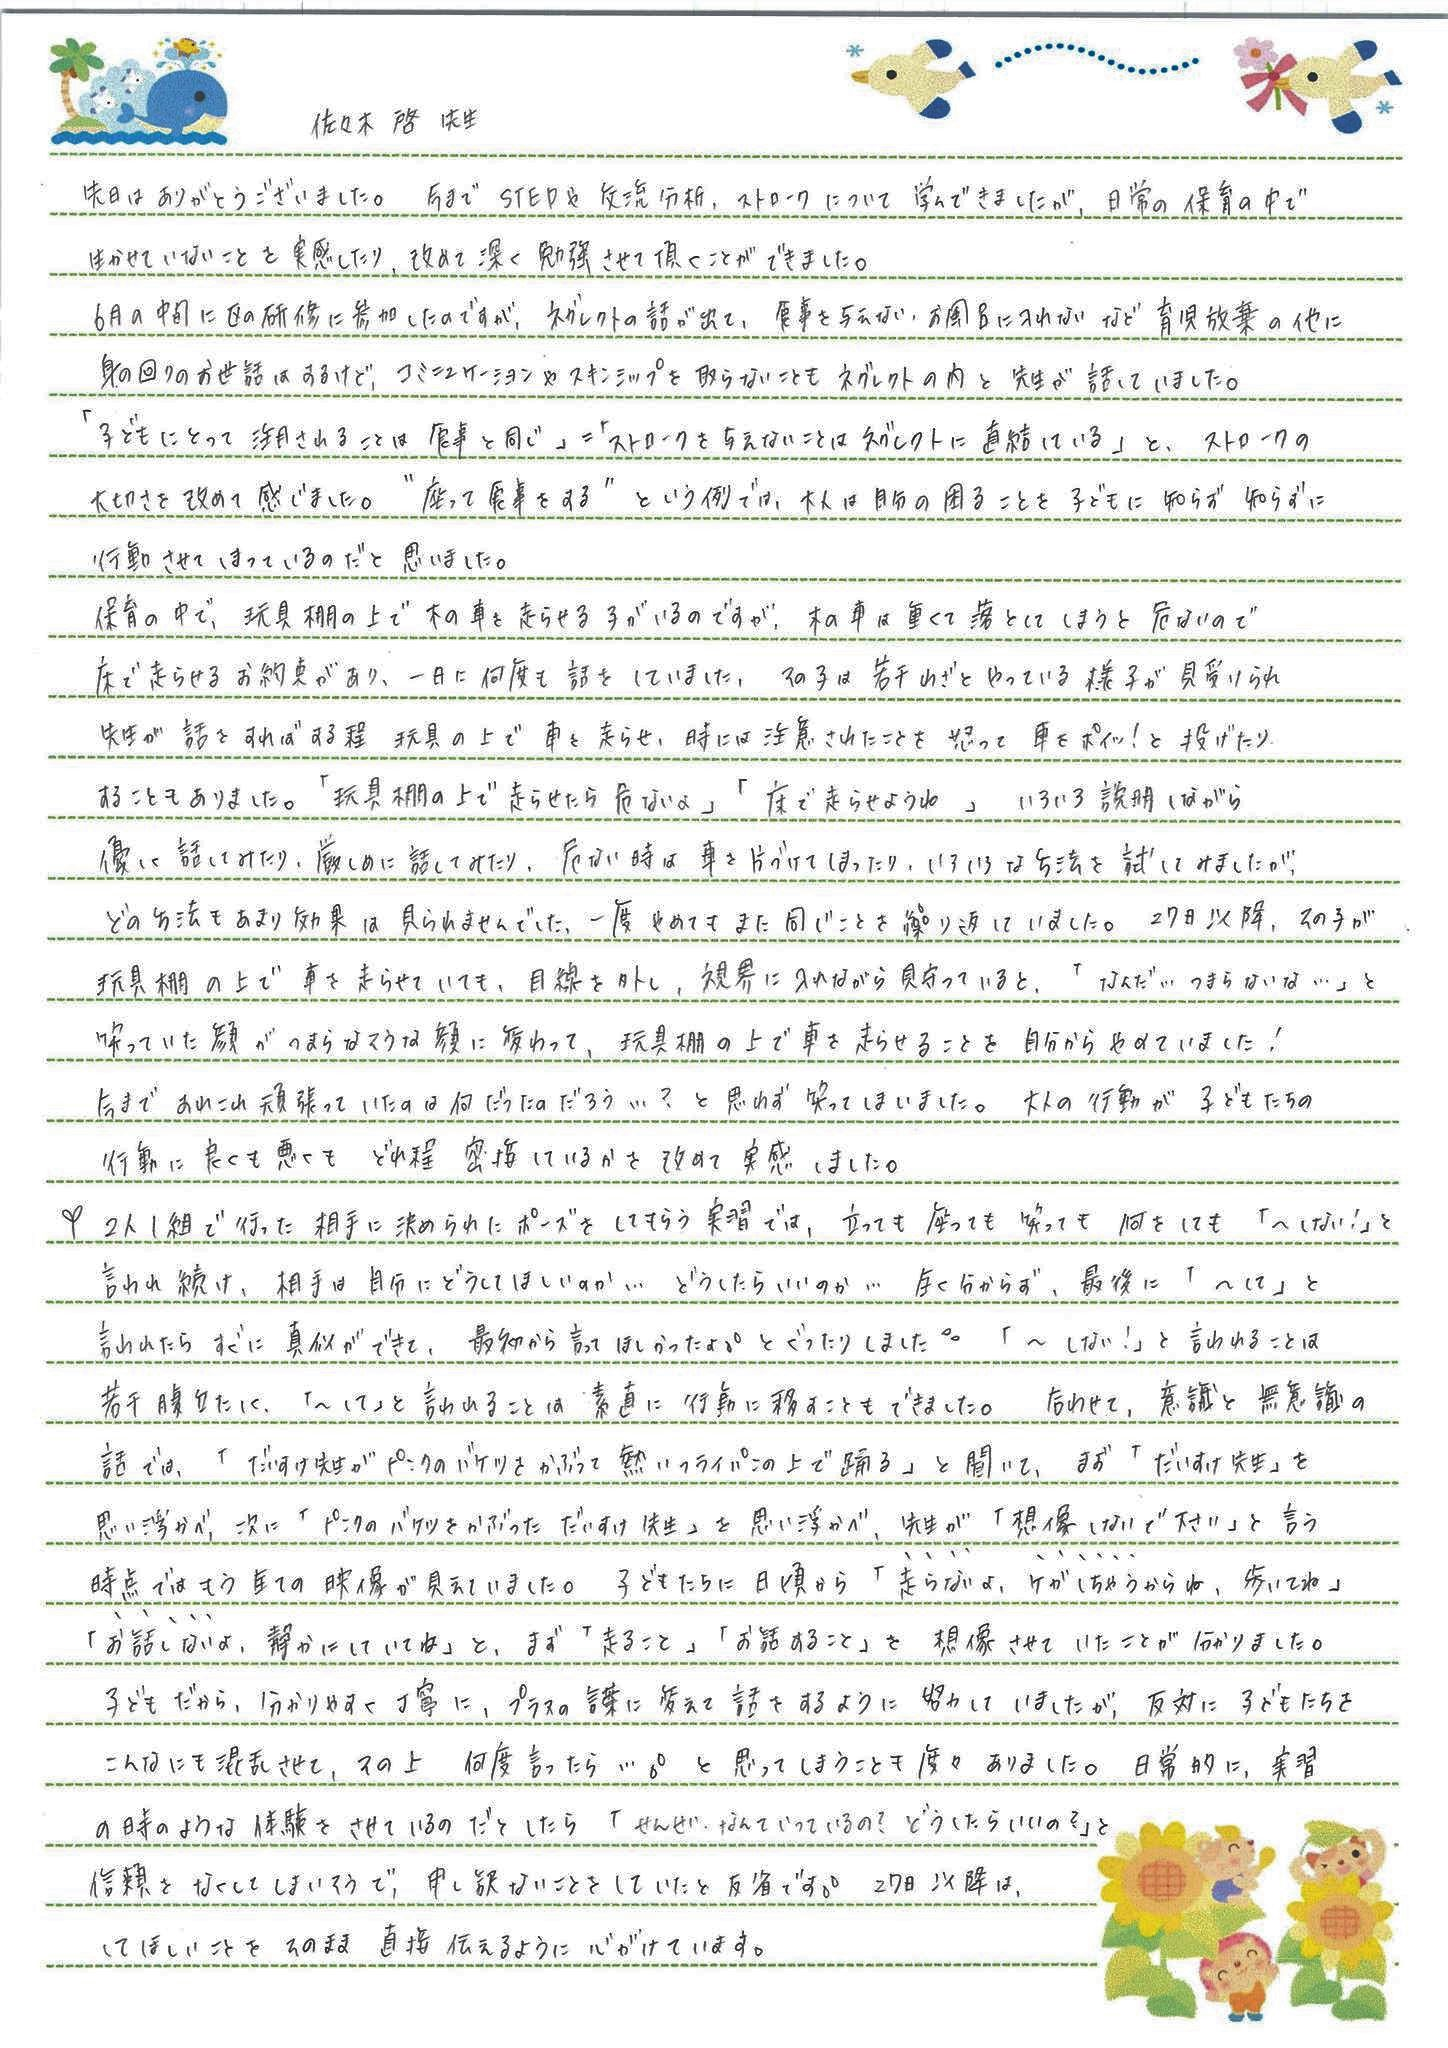 佐々木 啓 先生
先日はありがとうございました。 今まで STEPや交流分析、ストロークについて学んできましたが、日常の保育の中で
生かせていないことを実感したり、改めて深く勉強させて頂くことができました。
6月の中旬に区の研修に参加したのですが、ネグレクトの話が出て、食事を与えない・お風呂に入れないなど育児放棄の他に
身の回りのお世話はするけど、コミニュケーションやスキンシップを取らないこともネグレクトの内と先生が話していました。
「子どもにとって注目されることは食事と同じ」=「ストロークを与えないことはネグレクトに直結している」と、ストロークの
大切さを改めて感じました。"座って食事をする"という例では、大人は自分の困ることを子どもに知らず知らずに
行動させてしまっているのだと思いました。
保育の中で、玩具棚の上で木の車を走らせる子がいるのですが、木の車は重くて落としてしまうと危ないので
床で走らせるお約束があり、一日に何度も話をしていました。その子は若干わざとやっている様子が見受けられ
先生が話をすればする程 玩具の上で車を走らせ、時には注意されたことを怒って車をポイッ!と投げたり
することもありました。「玩具棚の上で走らせたら危ないよ」「床で走らせようね 」 いろいろ説明しながら
優しく話してみたり、厳しめに話してみたり、危ない時は車を片づけてしまったり、いろいろな方法を試してみましたが、
どの方法もあまり効果は見られませんでした。一度やめてもまた同じことを繰り返していました。27日以降、その子が
玩具棚の上で車を走らせていても、目線を外し、視界に入れながら見守っていると、「なんだ…つまらないな…」と
笑っていた顔がつまらなそうな顔に変わって、玩具棚の上で車を走らせることを自分からやめていました!
今まであれこれ頑張っていたのは何だったのだろう…?と思わず笑ってしまいました。大人の行動が子どもたちの
行動に良くも悪くもどれ程密接しているかを改めて実感しました。
2人1組で行った相手に決められたポーズをしてもらう実習では、立っても座っても笑っても何をしても「〜しない!」と
言われ続け、相手は自分にどうしてほしいのか…どうしたらいいのか…全く分からず、最後に「〜して」と
言われたらすぐに真似ができて、最初から言ってほしかったよ。とぐったりしました。「〜しない!」と言われることは
若干腹立たしく、「〜して」と言われることは素直に行動に移すこともできました。 合わせて、意識と無意識の
話では、「だいすけ先生がピンクのバケツをかぶって熱いフライパンの上で踊る」と聞いて、まず「だいすけ先生」を
思い浮かべ、次に「ピンクのバケツをかぶっただいすけ先生」を思い浮かべ、先生が「想像しないで下さい」と言う
時点ではもう全ての映像が見えていました。子どもたちに日頃から「走らないよ、ケガしちゃうからね、歩いてね」
「お話しないよ、静かにしていてね」と、まず「走ること」「お話すること」を想像させていたことが分かりました。
子どもだから、分かりやすく丁寧に、プラスの言葉に変えて話をするように努力していましたが、反対に子どもたちを
こんなにも混乱させて、その上 何度言ったら…。と思ってしまうことも度々ありました。日常的に、実習
の時のような体験をさせているのだとしたら「せんせい、なんていっているの?どうしたらいいの?」と
信頼をなくしてしまいそうで、申し訳ないことをしていたと反省です。27日以降は、
してほしいことをそのまま直接伝えるように心がけています。